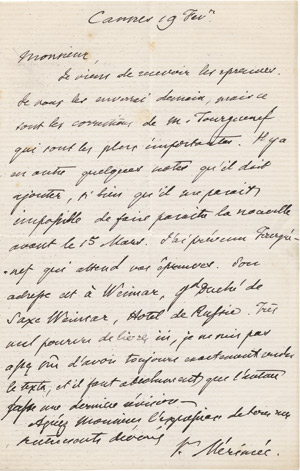 Cannes 19 Févr.
Monsieur,
Je viens de recevoir les épreuves.
Je vous les enverrai demain, mais ce
sont les corrections de M. Tourguenef
qui sont les plus importantes. Il y a
en outre quelques notes qu'il doit
ajouter, si bien qu'il me paraît
impossible de faire paraître la nouvelle
avant le 1er Mars. J'ai prévenu Tourgué-
nef qui attend vos épreuves. Son
adresse est à Weimar, gd Duché de
Saxe Weimar, Hotel de Russie. Très
mal pourvu de livres ici, je ne suis pas
sûr d'avoir toujours exactement rendu
le texte, et il faut absolument que l'auteur
fasse une dernière révision.
Agréez Monsieur l'expression de tous mes
sentiments dévoués
Pr Mérimée